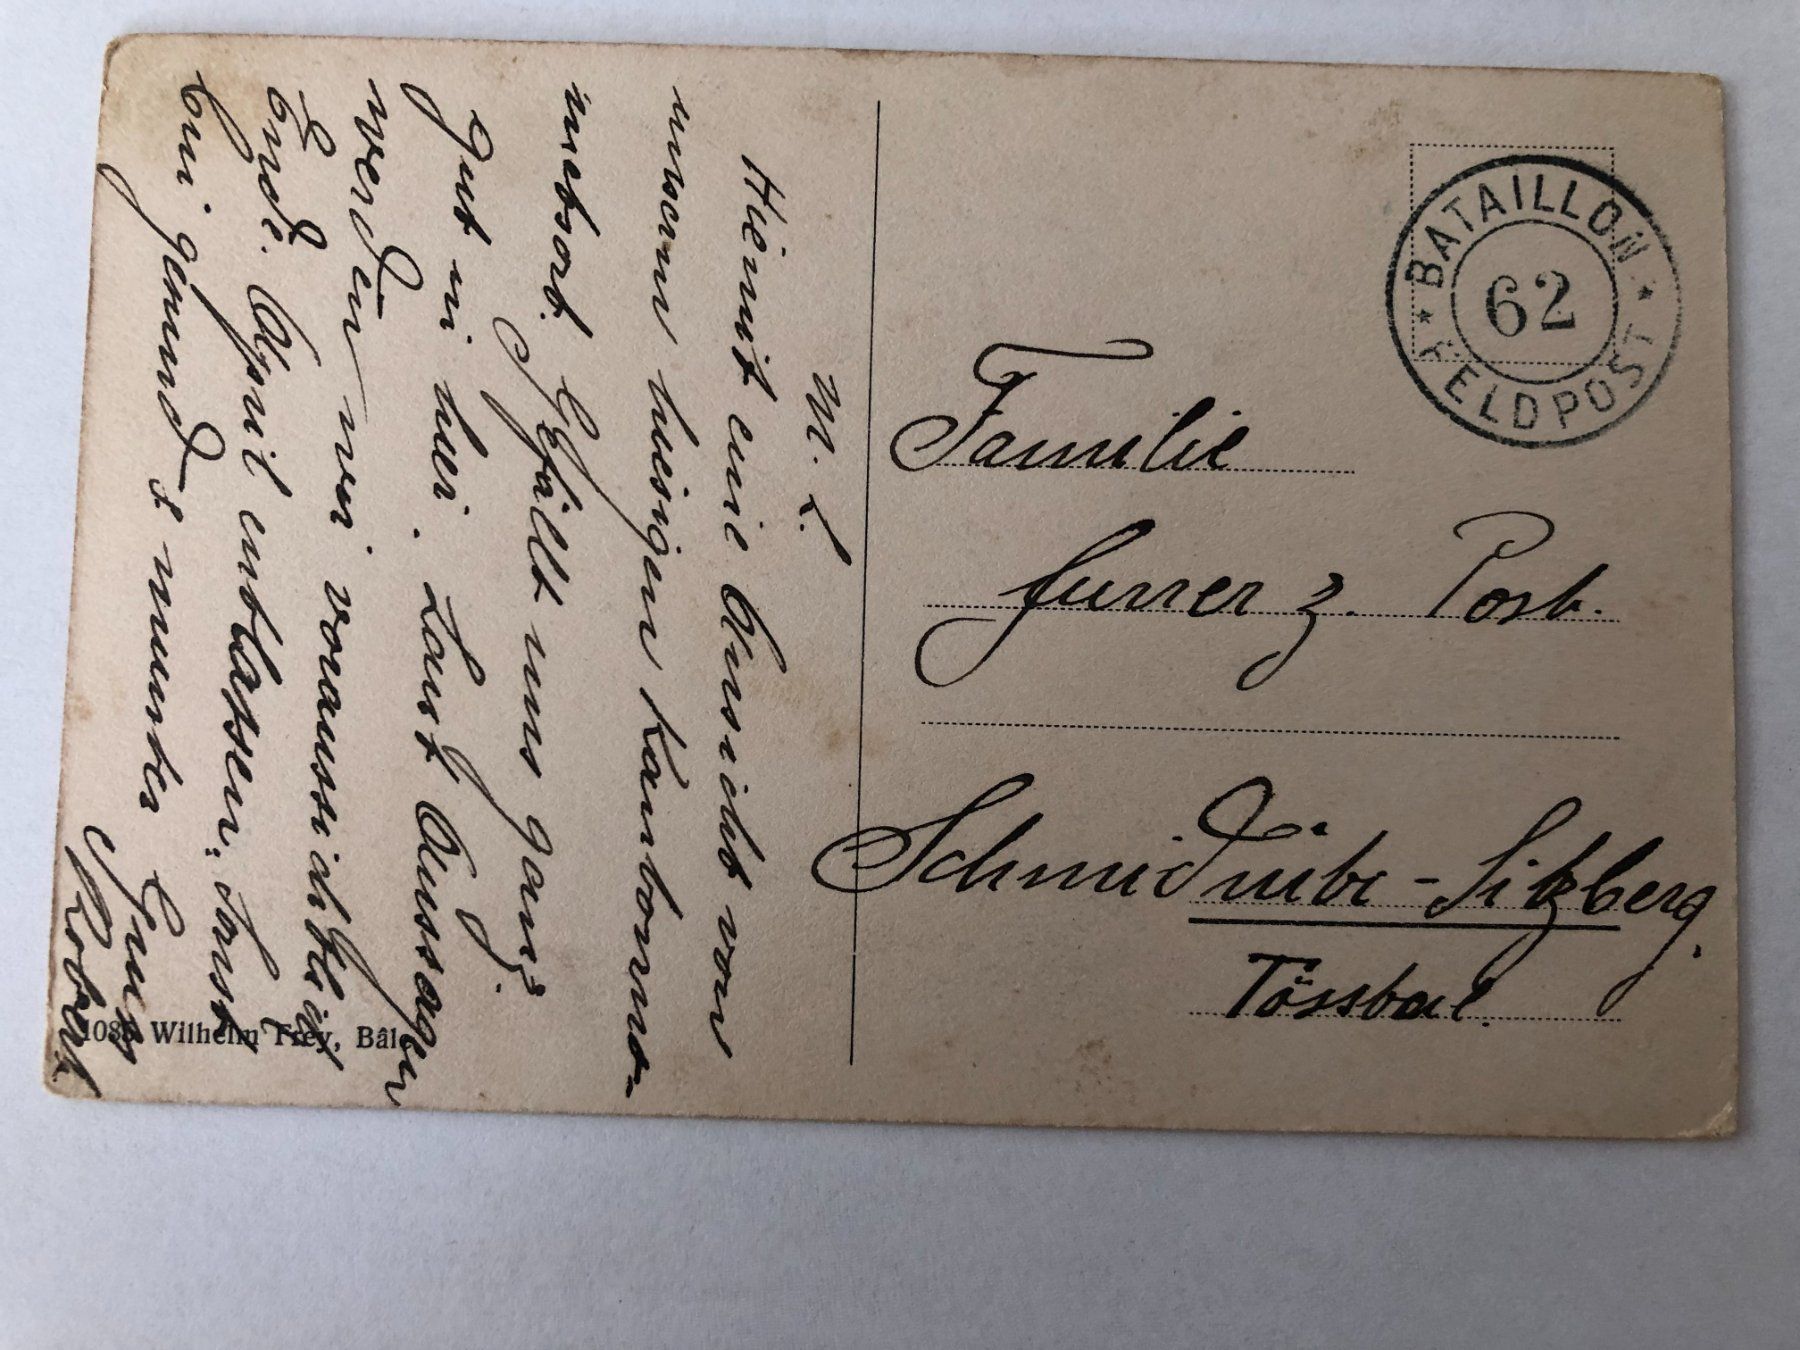 M. L.
Hiemit eine Ansicht von
unserm hiesigen Kantonne-
metsort. Gefällt uns ganz
gut in hier. Laut Aussagen
werden wir voraussichtlich
Ende April entlassen. Sonst
bin gesund & munter
Gruss
Robert
1086 Wilhelm Frey, Bâle
BATAILLON
62
FELDPOST
Familie
Furrer z. Post.
Schmidrüti-Sitzberg.
Tösstal.